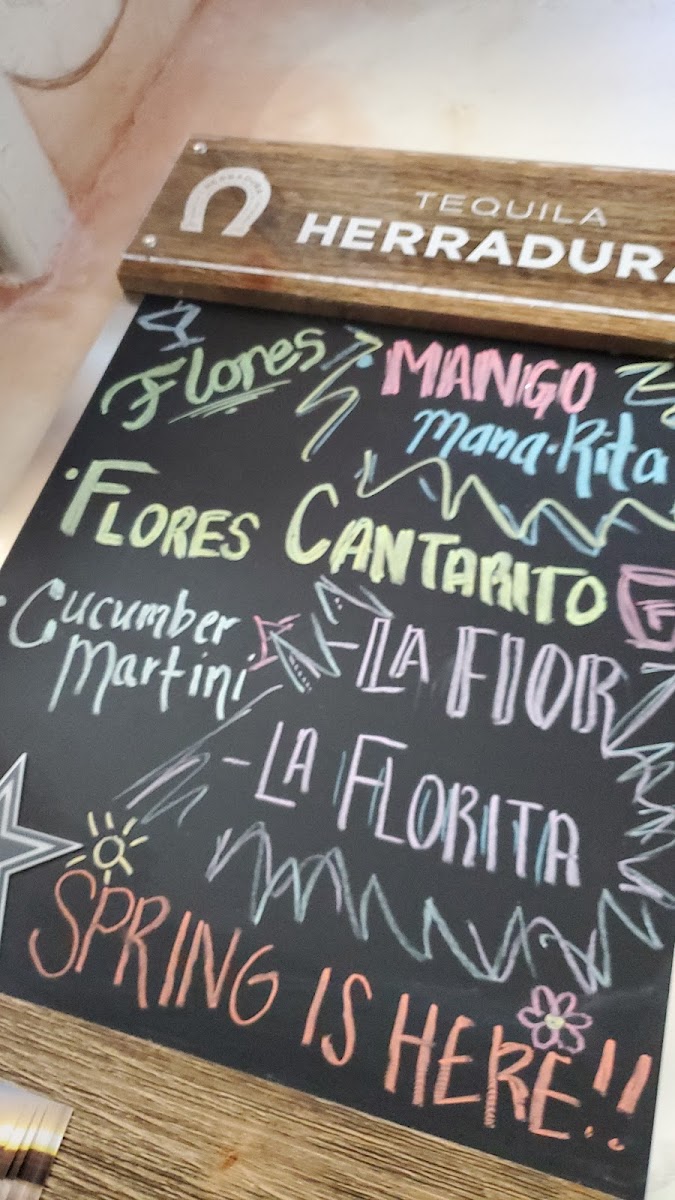 TEQUILA
HERRADURA
Flores
MANGO
Mana-Rita
FLORES CANTARITO
Cucumber
Martini
-LA FlOR
-LA FLORITA
SPRING IS HERE!!